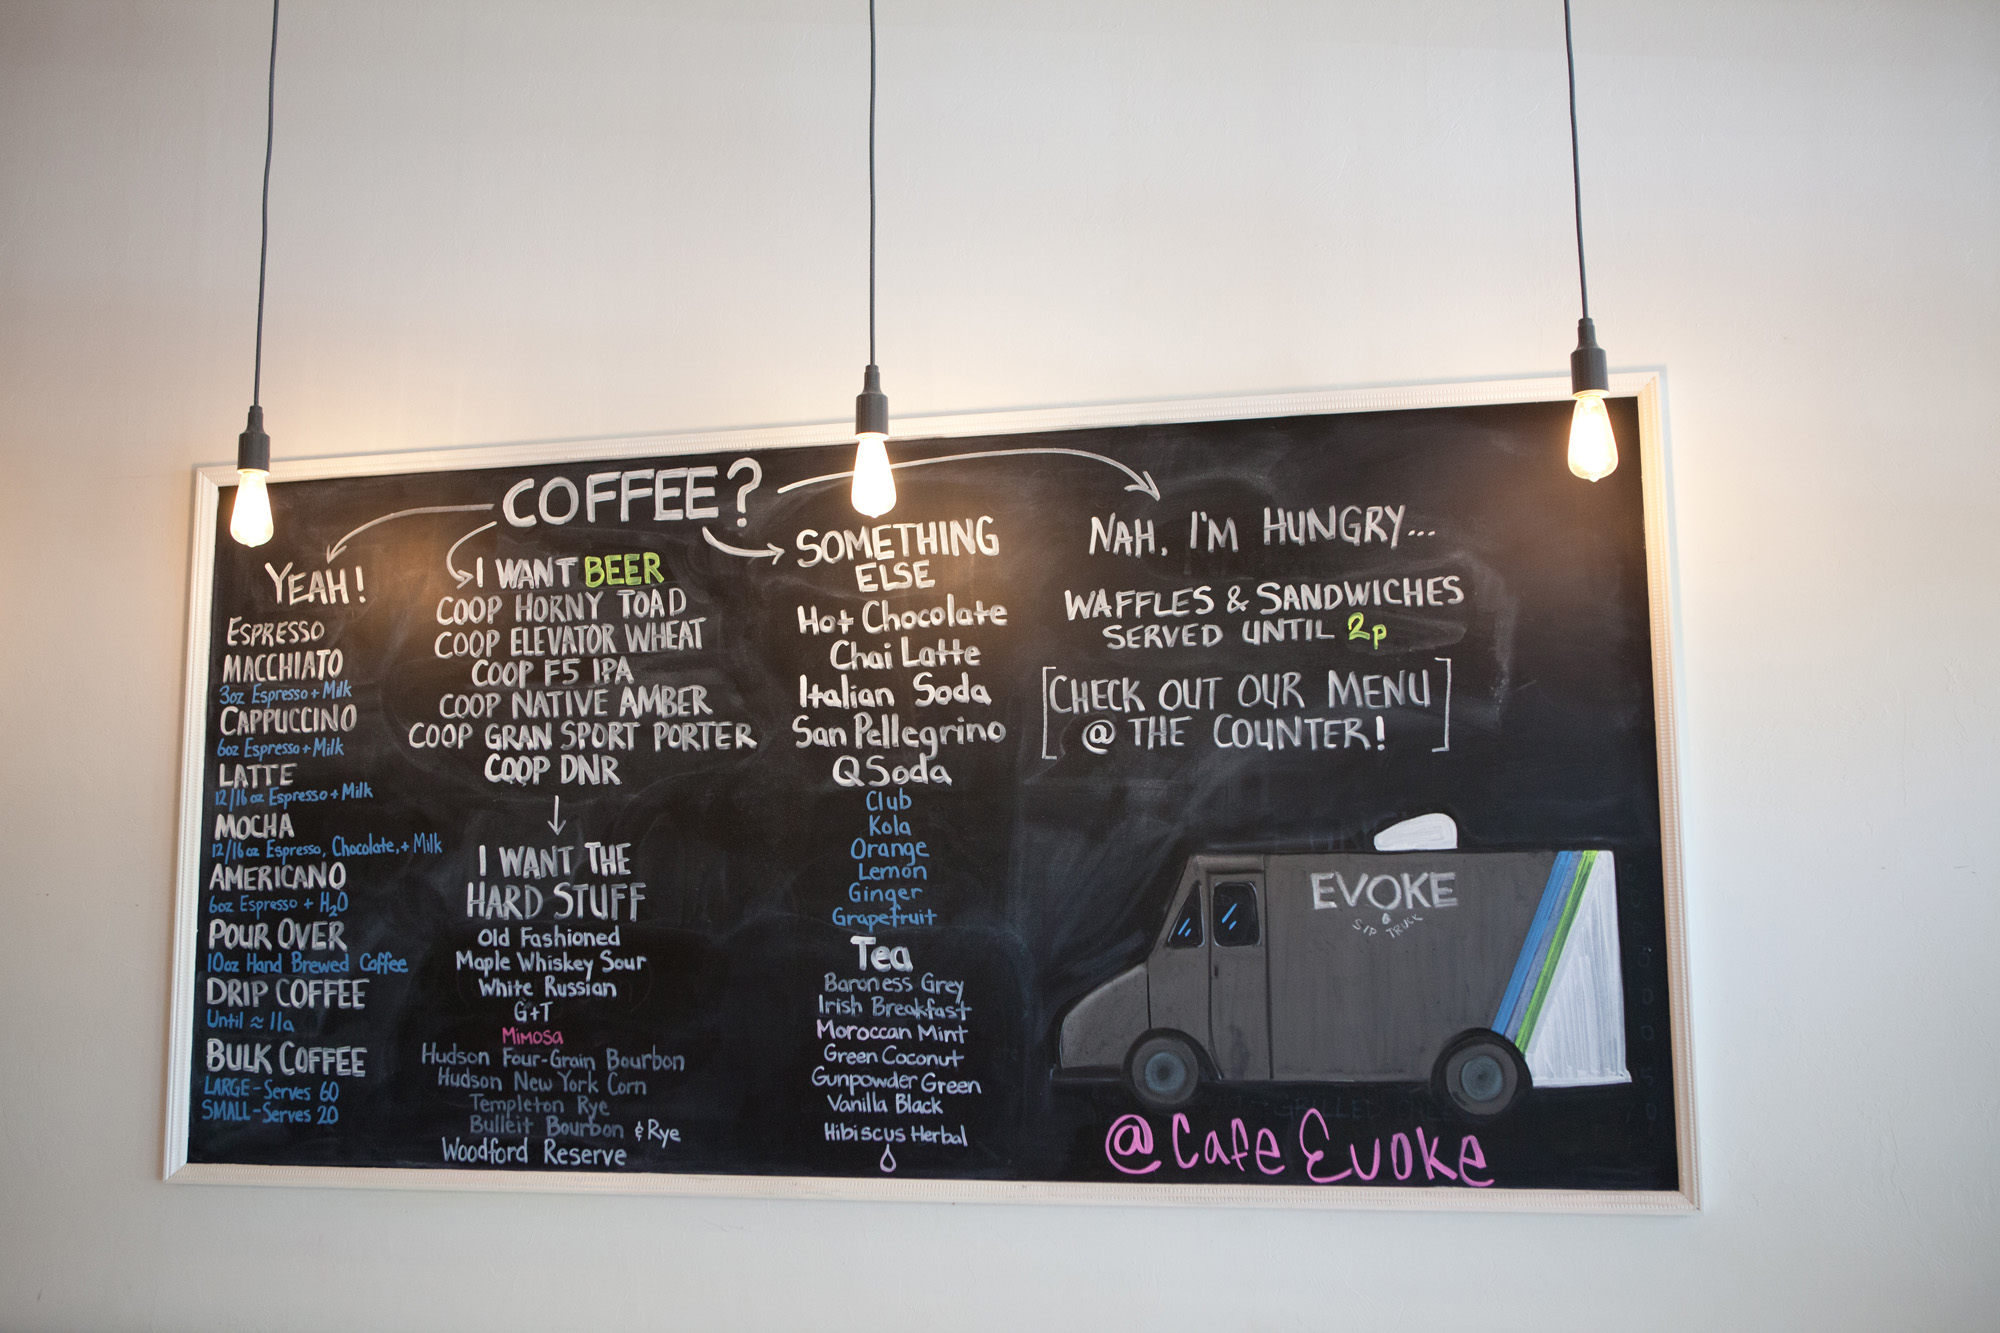 COFFEE?
YEAH!
ESPRESSO
MACCHIATO
3oz Espresso + Milk
CAPPUCCINO
6oz Espresso + Milk
LATTE
12/16 oz Espresso + Milk
MOCHA
12/16 oz Espresso, Chocolate, + Milk
AMERICANO
6oz Espresso + H2O
POUR OVER
10oz Hand Brewed Coffee
DRIP COFFEE
Until ≈ 11a
BULK COFFEE
LARGE - Serves 60
SMALL - Serves 20
I WANT BEER
COOP HORNY TOAD
COOP ELEVATOR WHEAT
COOP F5 IPA
COOP NATIVE AMBER
COOP GRAN SPORT PORTER
COOP DNR
I WANT THE
HARD STUFF
Old Fashioned
Maple Whiskey Sour
White Russian
G+T
Mimosa
Hudson Four-Grain Bourbon
Hudson New York Corn
Templeton Rye
Bulleit Bourbon & Rye
Woodford Reserve
SOMETHING
ELSE
Hot Chocolate
Chai Latte
Italian Soda
San Pellegrino
Q Soda
Club
Kola
Orange
Lemon
Ginger
Grapefruit
Tea
Baroness Grey
Irish Breakfast
Moroccan Mint
Green Coconut
Gunpowder Green
Vanilla Black
Hibiscus Herbal
NAH, I'M HUNGRY...
WAFFLES & SANDWICHES
SERVED UNTIL 2p
[CHECK OUT OUR MENU
@ THE COUNTER!]
EVOKE
SIP TRUCK
@CafeEvoke